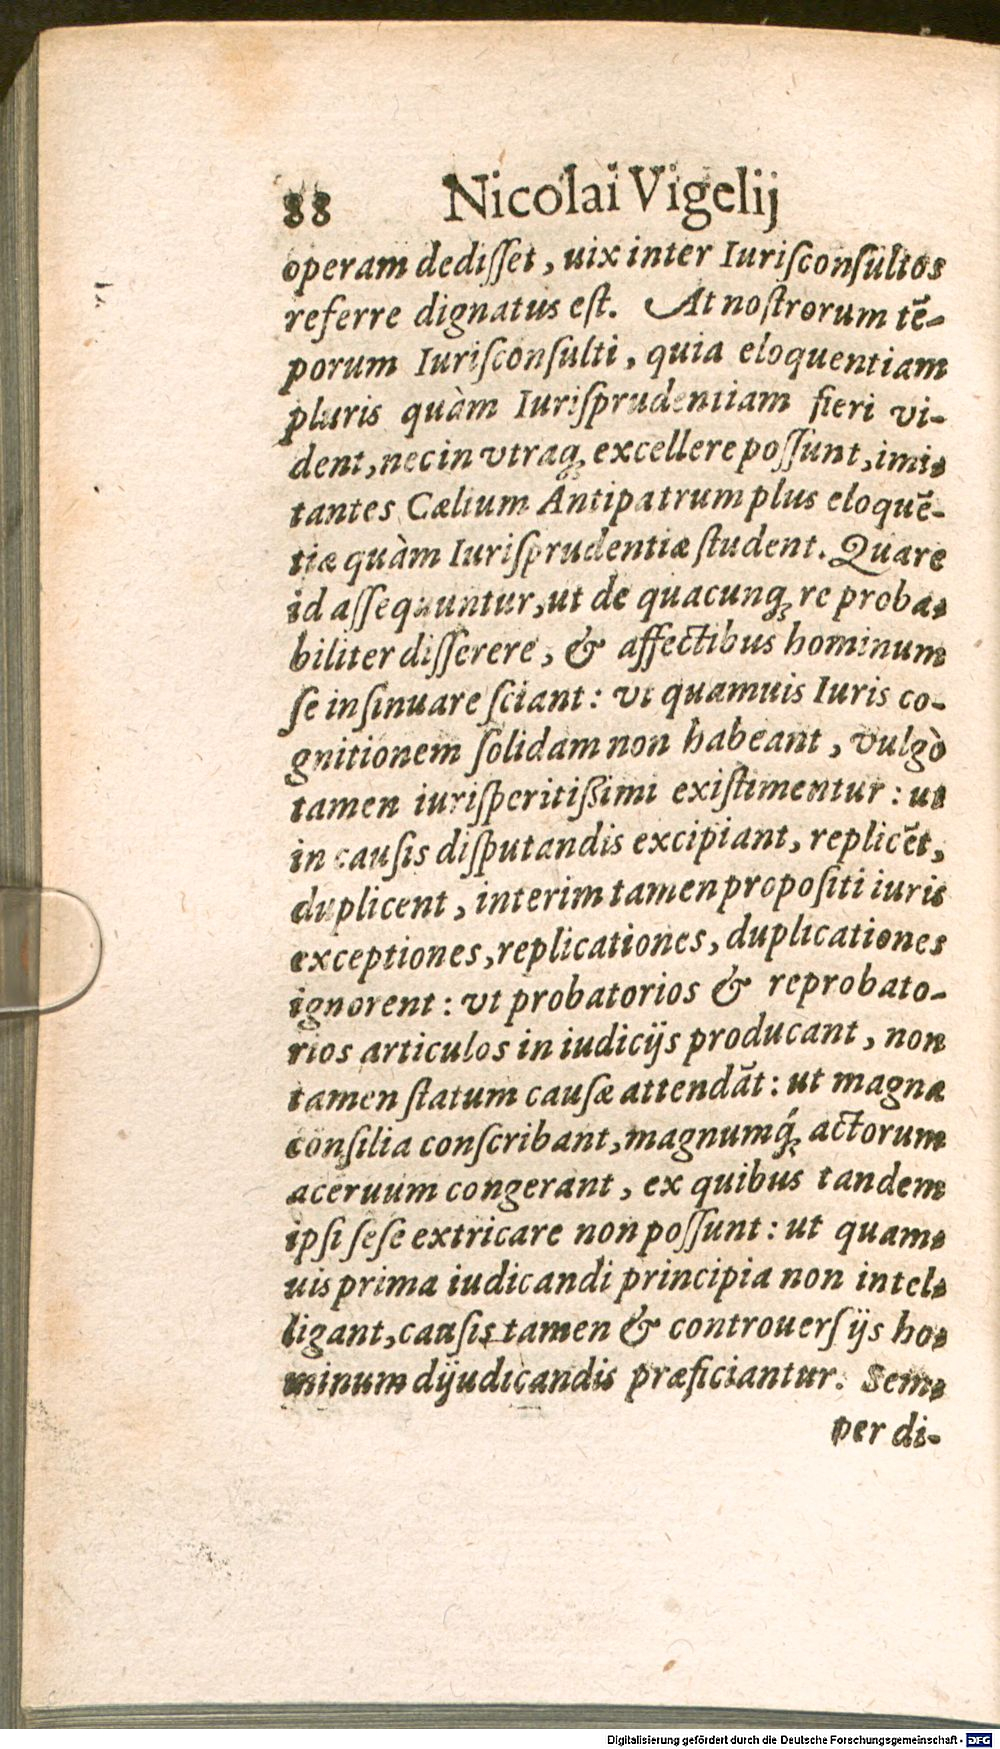 88 Nicolai Vigelij
operam dediſſet, uix inter Iuriſconſultos
referre dignatus eſt. At noſtrorum tē-
porum Iuriſconſulti, quia eloquentiam
pluris quàm Iuriſprudentiam fieri vi-
dent, nec in vtraq; excellere poſſunt, imi-
tantes Cælium Antipatrum plus eloquē-
tiæ quàm Iuriſprudentiæ ſtudent. Quare
id aſſequuntur, ut de quacunq; re proba-
biliter diſſerere, & affectibus hominum
ſe inſinuare ſciant: vt quamuis Iuris co-
gnitionem ſolidam non habeant, vulgò
tamen iuriſperitißimi exiſtimentur: ut
in cauſis diſputandis excipiant, replicēt,
duplicent, interim tamen propoſiti iuris
exceptiones, replicationes, duplicationes
ignorent: vt probatorios & reprobato-
rios articulos in iudicijs producant, non
tamen ſtatum cauſæ attendāt: ut magna
conſilia conſcribant, magnumq́; actorum
aceruum congerant, ex quibus tandem
ipſi ſeſe extricare non poſſunt: ut quam-
uis prima iudicandi principia non intel-
ligant, cauſis tamen & controuerſijs ho-
minum dijudicandis præficiantur. Sem-
per di-
Digitalisierung gefördert durch die Deutsche Forschungsgemeinschaft - DFG